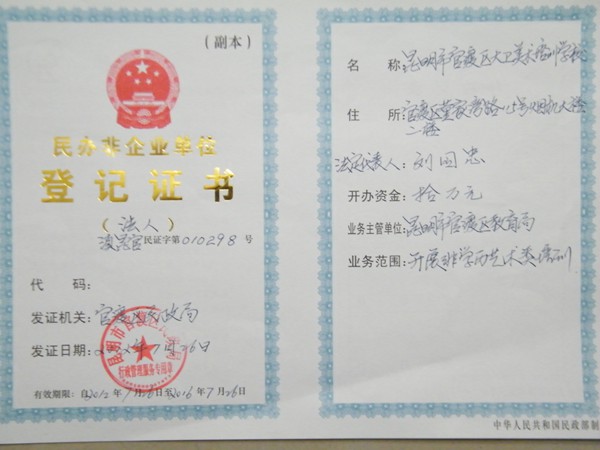 （副本）
民办非企业单位
登记证书
（法人）
滇昆官民证字第010298号
代 码：
发证机关：官渡区民政局
发证日期：2012年7月26日
有效期限：自2012年7月26日至2016年7月26日
昆明市官渡区民政局
行政管理服务专用章
名 称：昆明市官渡区大卫美术培训学校
住 所：官渡区董家湾路
二楼
法定代表人：刘国忠
开办资金：拾万元
业务主管单位：昆明市官渡区教育局
业务范围：开展非学历艺术类培训
中华人民共和国民政部制